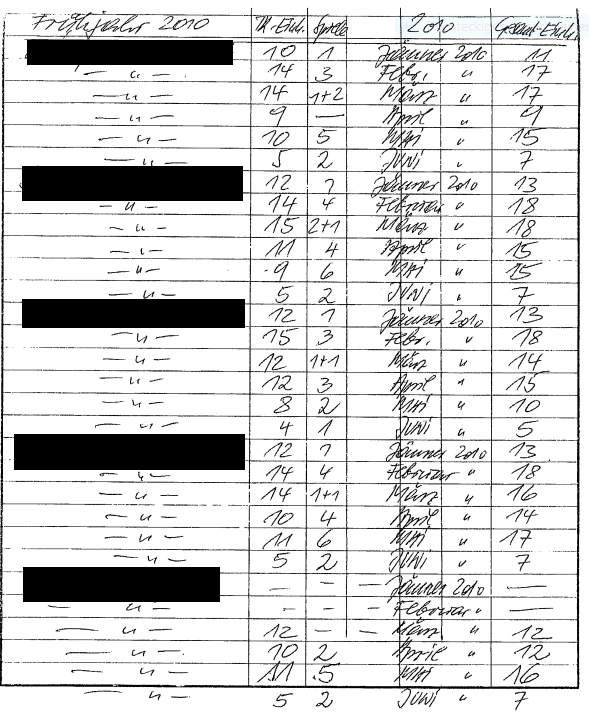 Frühjahr 2010 Tr.-Einh. Spiele 2010 Gesamt-Einh.
10 1 Jänner 2010 11
— " — 14 3 Febr. " 17
— " — 14 1+2 März " 17
— " — 9 — April " 9
— " — 10 5 Mai " 15
— " — 5 2 Juni " 7
12 1 Jänner 2010 13
— " — 14 4 Februar " 18
— " — 15 2+1 März " 18
— " — 11 4 April " 15
— " — 9 6 Mai " 15
— " — 5 2 Juni " 7
12 1 Jänner 2010 13
— " — 15 3 Febr. " 18
— " — 12 1+1 März " 14
— " — 12 3 April " 15
— " — 8 2 Mai " 10
— " — 4 1 Juni " 5
12 1 Jänner 2010 13
— " — 14 4 Februar " 18
— " — 14 1+1 März " 16
— " — 10 4 April " 14
— " — 11 6 Mai " 17
— " — 5 2 Juni " 7
— — — Jänner 2010 —
— " — — — — Februar " —
— " — 12 — — März " 12
— " — 10 2 April " 12
— " — 11 5 Mai " 16
— " — 5 2 Juni " 7